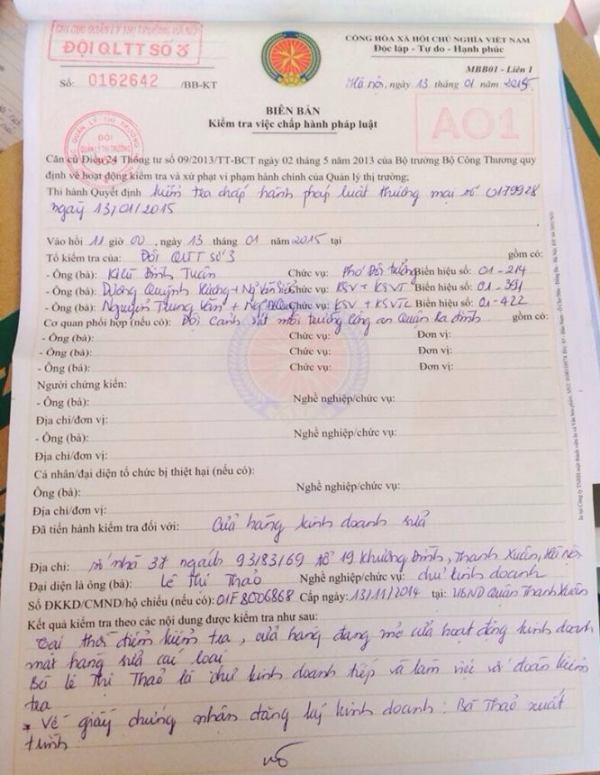 CHI CỤC QUẢN LÝ THỊ TRƯỜNG HÀ NỘI
ĐỘI QLTT SỐ 3
Số: 0162642 /BB-KT
CỘNG HÒA XÃ HỘI CHỦ NGHĨA VIỆT NAM
Độc lập - Tự do - Hạnh phúc
MBB01 - Liên 1
Hà Nội, ngày 13 tháng 01 năm 2015
A01
BIÊN BẢN
Kiểm tra việc chấp hành pháp luật
Căn cứ Điều 24 Thông tư số 09/2013/TT-BCT ngày 02 tháng 5 năm 2013 của Bộ trưởng Bộ Công Thương quy
định về hoạt động kiểm tra và xử phạt vi phạm hành chính của Quản lý thị trường;
Thi hành Quyết định kiểm tra chấp hành pháp luật thương mại số 0179928
ngày 13/01/2015
Vào hồi 11 giờ 00, ngày 13 tháng 01 năm 2015 tại
Tổ kiểm tra của: Đội QLTT số 3 gồm có:
- Ông (bà): Kiều Đình Tuấn Chức vụ: Phó Đội trưởng Biển hiệu số: 01-214
- Ông (bà): Dương Quỳnh Chức vụ: KSV + KSVTC Biển hiệu số: 01-391
- Ông (bà): Nguyễn Trung Văn + Chức vụ: KSV + KSVTC Biển hiệu số: 01-422
Cơ quan phối hợp (nếu có): Đội cảnh sát môi trường Công an Quận Ba Đình gồm có:
- Ông (bà): Chức vụ: Đơn vị:
- Ông (bà): Chức vụ: Đơn vị:
- Ông (bà): Chức vụ: Đơn vị:
Người chứng kiến:
- Ông (bà): Nghề nghiệp/chức vụ:
Địa chỉ/đơn vị:
- Ông (bà): Nghề nghiệp/chức vụ:
Địa chỉ/đơn vị:
Cá nhân/đại diện tổ chức bị thiệt hại (nếu có):
Ông (bà): Nghề nghiệp/chức vụ:
Địa chỉ/đơn vị:
Đã tiến hành kiểm tra đối với: Cửa hàng kinh doanh sữa
Địa chỉ: số nhà 37 ngách 93/83/69 tổ 19 Khương Đình, Thanh Xuân, Hà Nội
Đại diện là ông (bà): Lê Thị Thảo Nghề nghiệp/chức vụ: chủ kinh doanh
Số ĐKKD/CMND/hộ chiếu (nếu có): 01F8006868 Cấp ngày: 13/11/2014 tại: UBND Quận Thanh Xuân
Kết quả kiểm tra theo các nội dung được kiểm tra như sau:
Tại thời điểm kiểm tra, cửa hàng đang mở cửa hoạt động kinh doanh
mặt hàng sữa các loại
Bà Lê Thị Thảo là chủ kinh doanh tiếp và làm việc với đoàn kiểm
tra
* Về giấy chứng nhận đăng ký kinh doanh: Bà Thảo xuất
trình